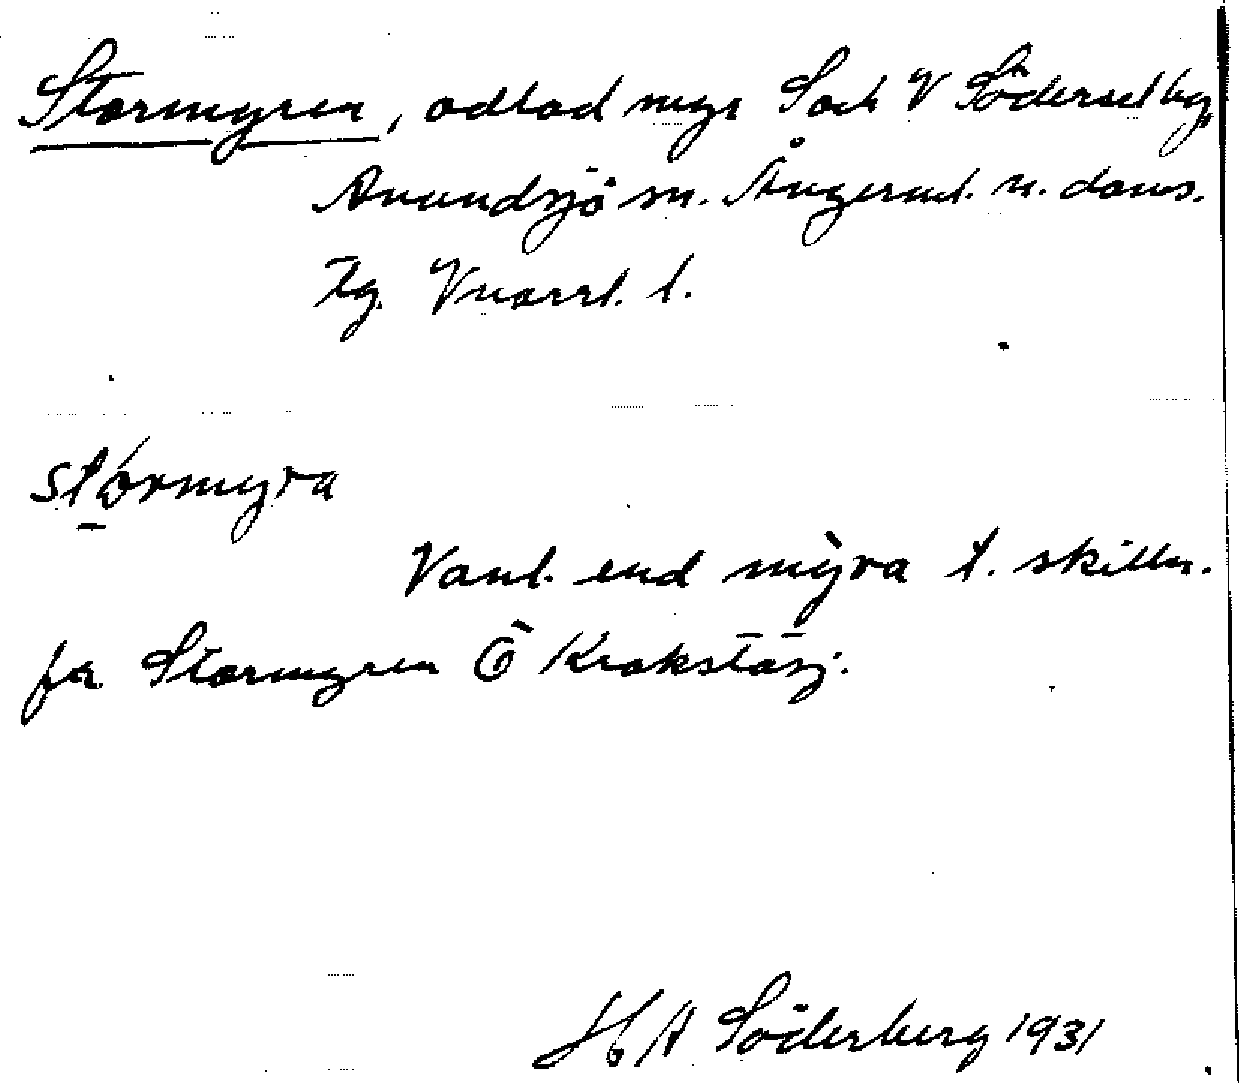 Stormyren, odlad myr S och V Södersel by,
Anundsjö sn. Ångerml. n. doms.
Tg. Vnorrl. l.
stórmyra
Vanl. end mỳra t. skilln.
fr Stormyren Ö Krokståsj.
H A Söderberg 1931